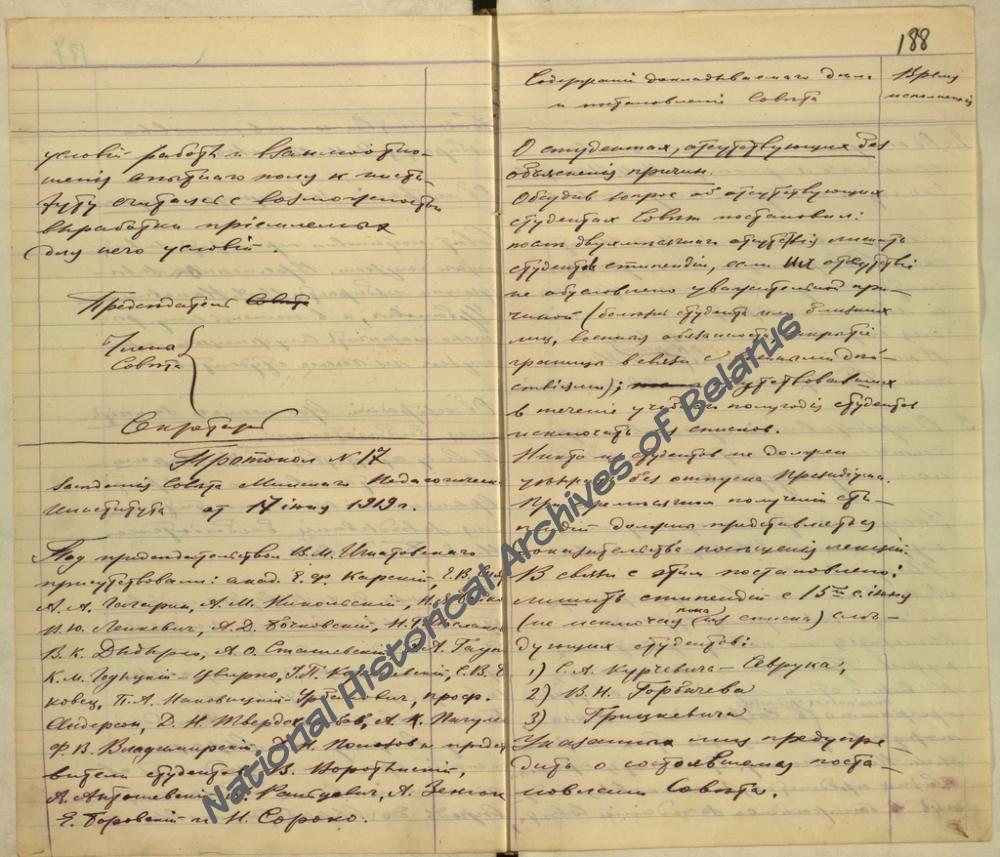 условій работы и взаимоотно-
шенія опытнаго полю к инсти-
туту считался с возможностью
выработки пріемлемых
для него условій.
Председатель Совѣта
Члены
Совѣта
Секретарь
Протокол N 17
Засѣданія Совѣта Минскаго Педагогическ
Института от 17 іюня 1919 г.
Под председательством В.М. Игнатовскаго
присутствовали: акад. Е.Ф. Карскій, Е.В.
А.А. Гагарин, А.М. Никольскій,
И.Ю. Лешкевич, А.Д. Бочковскій, Н.
В.К. Дыдырко, А.О. Сташевскій,
К.М. Годыцкій-Цвирко,
ковец, П.А. проф.
Андерсон, Д.Н. А.К.
Ф.В. Владимирскій,
вители студентов Воротынскій,
А. Антошевскій, А.
Е. Боровскій и Н. Сороко.
188
Содержаніе докладываемаго дѣла
и постановленій Совѣта
Время
исполненій
О студентах, отсутствующих без
объясненія причин.
Обсудив вопрос об отсутствующих
студентах Совѣт постановил:
послѣ двухмѣсячнаго отсутствія лишать
студентов стипендій, если их отсутствіе
не обусловлено уважительной при-
чиной (болезнь студента или близких
лиц, военная обязанность, закрытіе
границы в связи с военными дѣй-
ствіями); отсутствовавших
в теченіе учебнаго полугодія студентов
исключать из списков.
Никто из студентов не должен
уѣзжать без отпуска Президіума.
При получении сти-
пендій должны представляться
доказательства посѣщенія лекцій.
В связи с этим постановлено:
лишить стипендій с 15го с. іюня
(не исключая пока из списка) слѣ-
дующих студентов:
1) С.А. Курчевича-Севрука,
2) В.Н. Горбачева
3) Грицкевича
Указанных лиц предупре-
дить о состоявшемся поста-
новленіи Совѣта.
National Historical Archives of Belarus